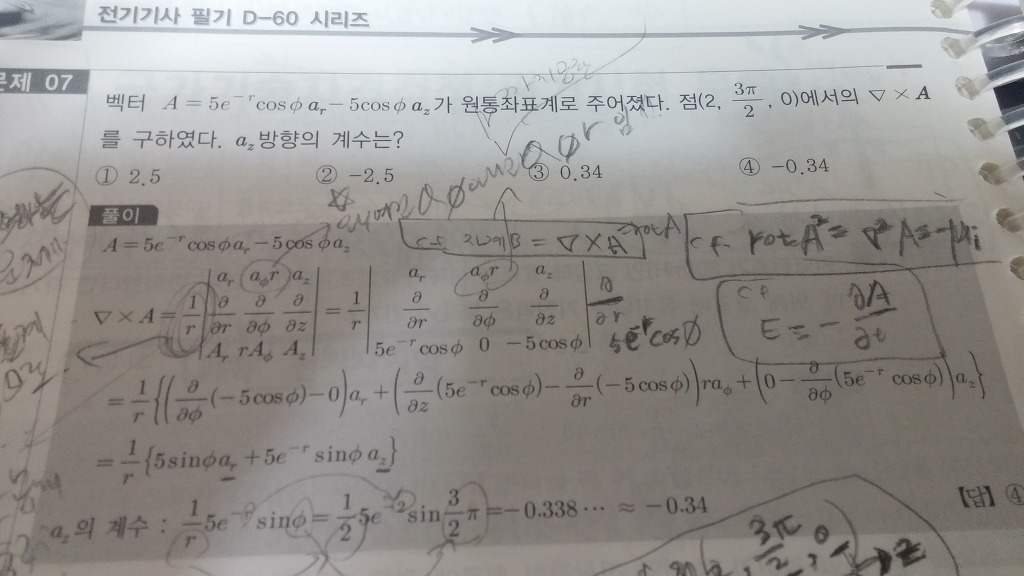 전기기사 필기 D-60 시리즈
문제 07
벡터 A = 5e^{-r}cosϕ a_r − 5cosϕ a_z가 원통좌표계로 주어졌다. 점(2, 3π/2, 0)에서의 ∇×A
를 구하였다. a_z방향의 계수는?
① 2.5 ② −2.5 ③ 0.34 ④ −0.34
풀이
A = 5e^{-r}cosϕ a_r − 5cosϕ a_z
cf 자계 B = ∇×A = rot A
cf. rot A² = ∇²A = −μi
∇×A = 1/r | a_r a_ϕr a_z | = 1/r | a_r a_ϕr a_z | ∂/∂r
| ∂/∂r ∂/∂ϕ ∂/∂z | | ∂/∂r ∂/∂ϕ ∂/∂z |
| A_r rA_ϕ A_z | | 5e^{-r}cosϕ 0 −5cosϕ | 5e^{-r}cosϕ
cf
E = − ∂A/∂t
= 1/r {(∂/∂ϕ(−5cosϕ)−0)a_r + (∂/∂z(5e^{-r}cosϕ) − ∂/∂r(−5cosϕ))ra_ϕ + (0 − ∂/∂ϕ(5e^{-r}cosϕ))a_z}
= 1/r {5sinϕa_r + 5e^{-r}sinϕ a_z}
a_z의 계수 : 1/r 5e^{-r}sinϕ = 1/2 5e^{-2}sin 3/2 π = −0.338⋯ ≈ −0.34
【답】④
2, 3π/2, 0 → z